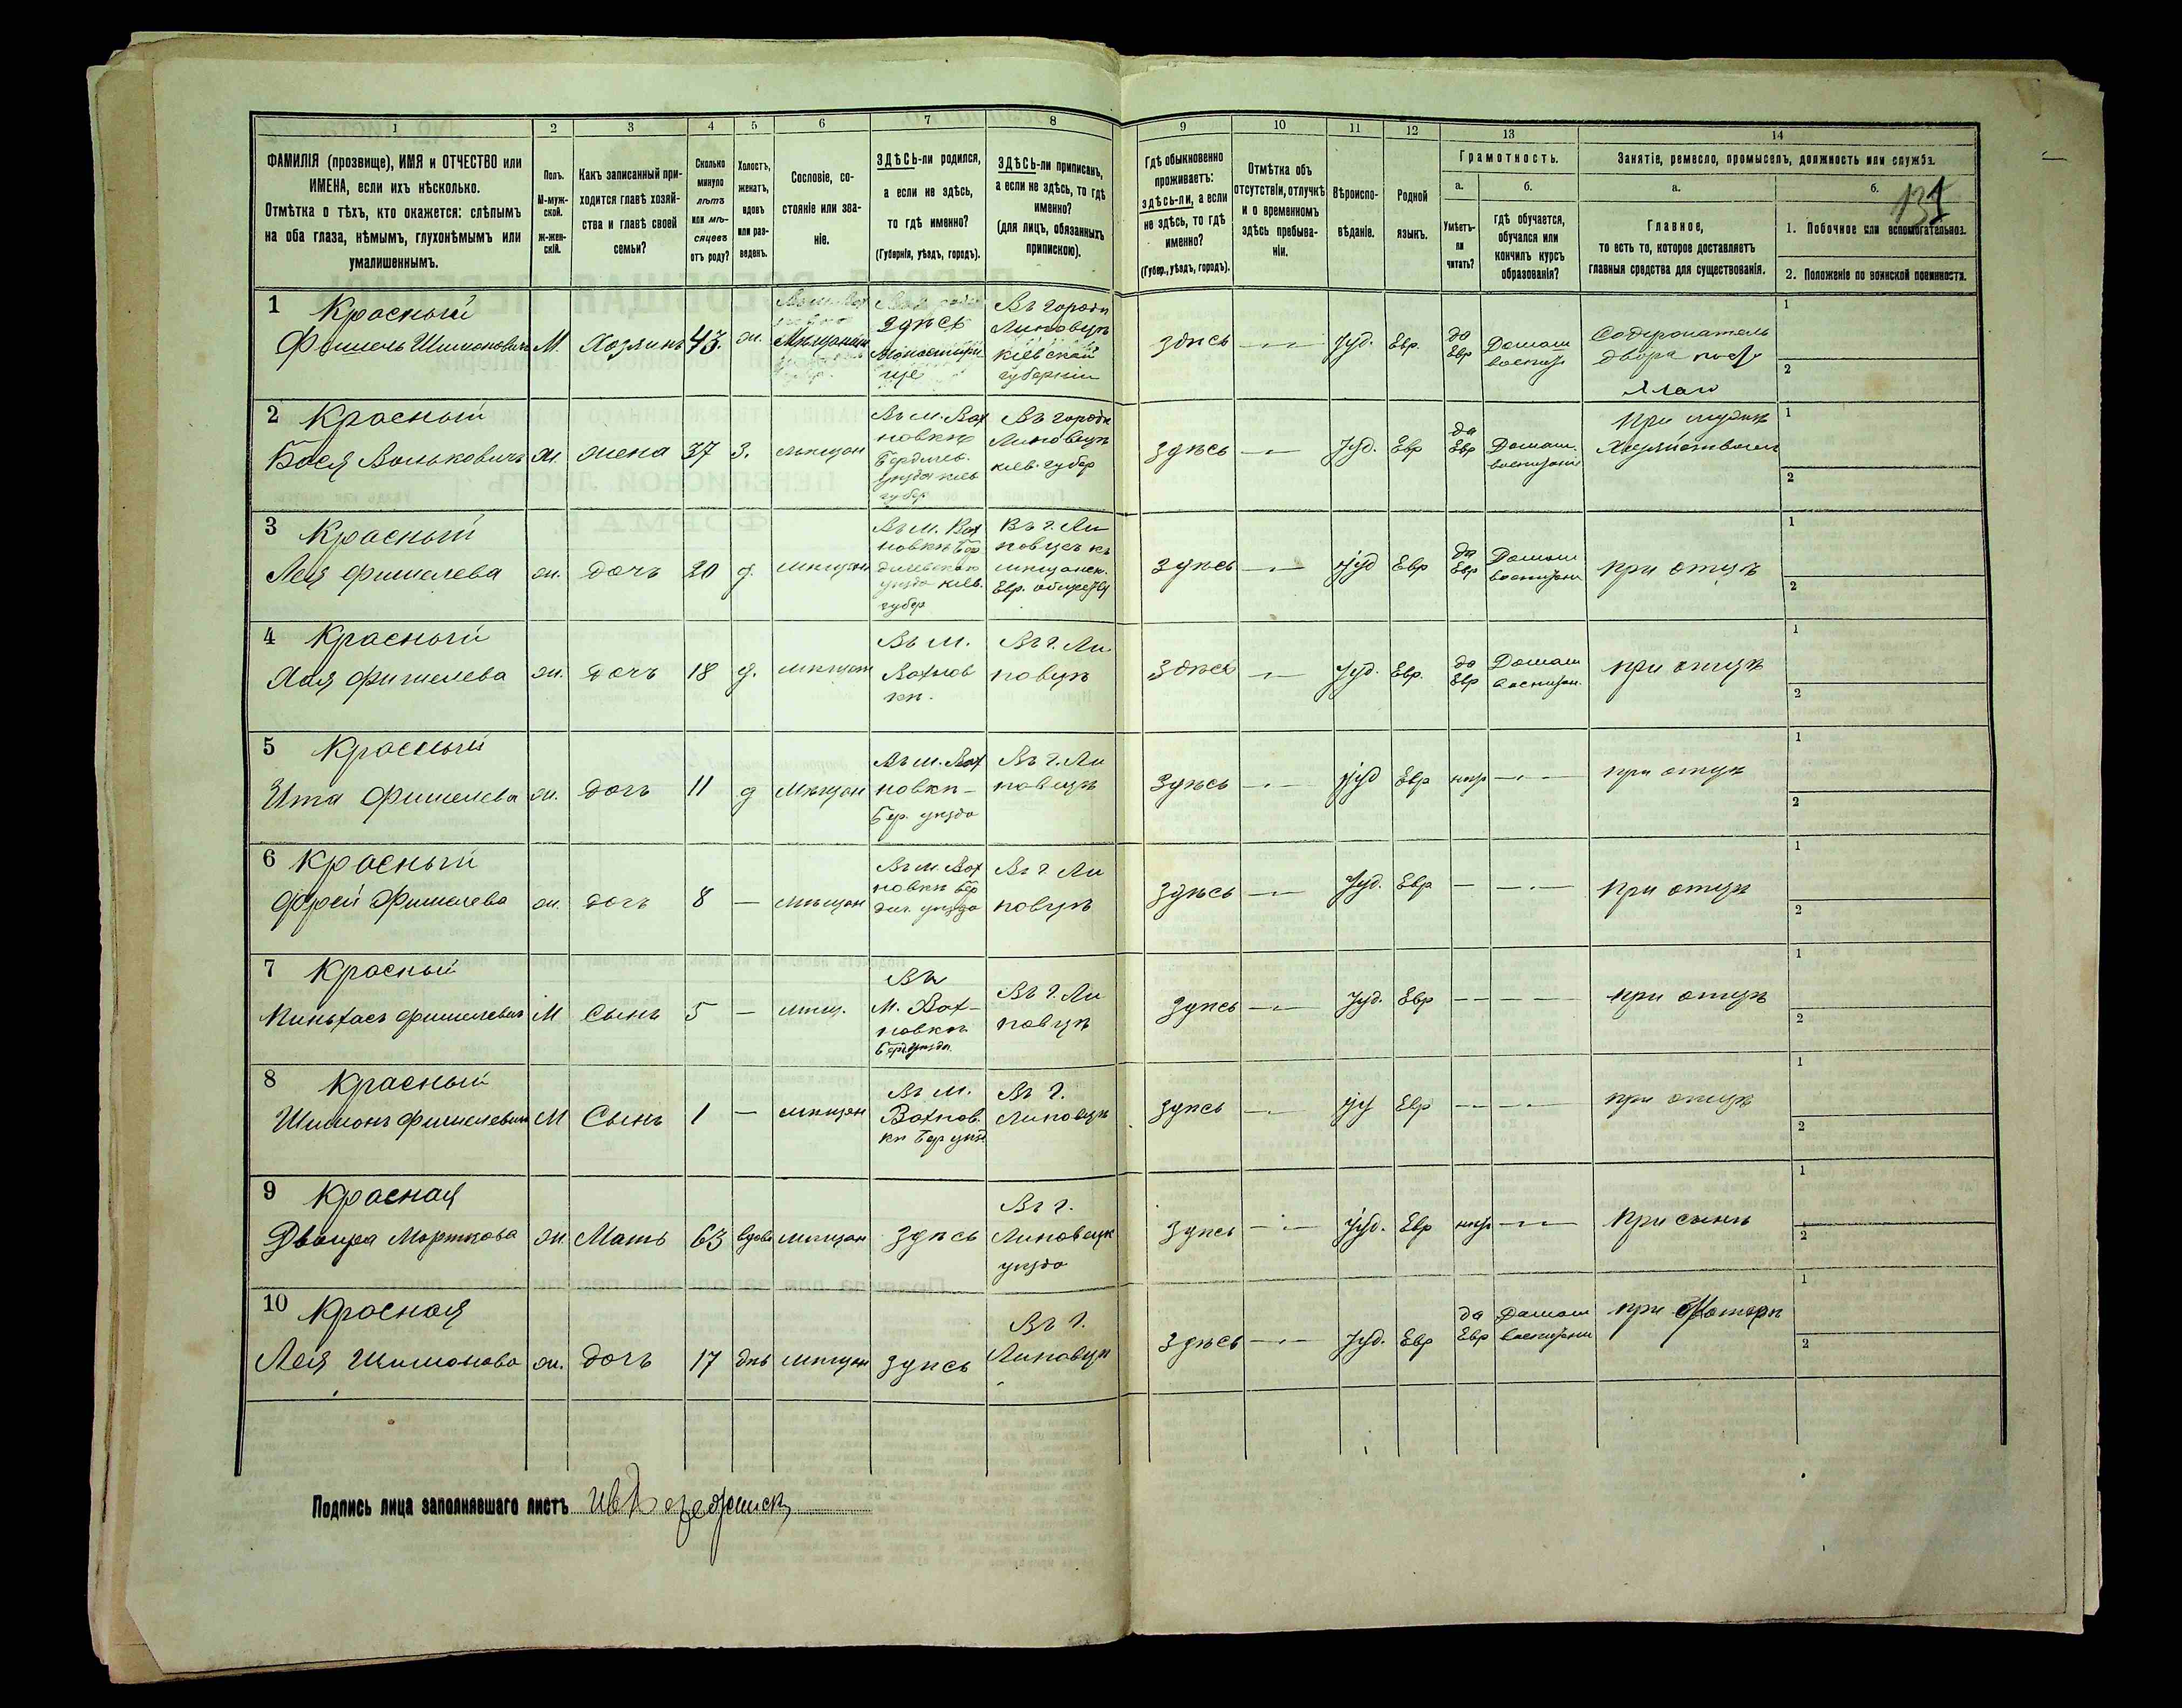 1 2 3 4 5 6 7 8 9 10 11 12 13 14
ФАМИЛІЯ (прозвище), ИМЯ и ОТЧЕСТВО или
ИМЕНА, если ихъ нѣсколько.
Отмѣтка о тѣхъ, кто окажется: слѣпымъ
на оба глаза, нѣмымъ, глухонѣмымъ или
умалишеннымъ.
Полъ.
М-муж-
ской.
ж-жен-
скій.
Какъ записанный при-
ходится главѣ хозяй-
ства и главѣ своей
семьи?
Сколько
минуло
лѣтъ
или мѣ-
сяцевъ
отъ роду?
Холостъ,
женатъ,
вдовъ
или раз-
веденъ.
Сословіе, со-
стояніе или зва-
ніе.
ЗДѢСЬ-ли родился,
а если не здѣсь,
то гдѣ именно?
(Губернія, уѣздъ, городъ).
ЗДѢСЬ-ли приписанъ,
а если не здѣсь, то гдѣ
именно?
(для лицъ, обязанныхъ
припискою).
Гдѣ обыкновенно
проживаетъ:
здѣсь-ли, а если
не здѣсь, то гдѣ
именно?
(Губер., уѣздъ, городъ).
Отмѣтка объ
отсутствіи, отлучкѣ
и о временномъ
здѣсь пребыва-
ніи.
Вѣроиспо-
вѣданіе.
Родной
языкъ.
Грамотность.
а.
Умѣетъ-
ли
читать?
б.
гдѣ обучается,
обучался или
кончилъ курсъ
образованія?
Занятіе, ремесло, промыселъ, должность или служба.
а.
Главное,
то есть то, которое доставляетъ
главныя средства для существованія.
б.
1. Побочное или вспомогательное.
2. Положеніе по воинской повинности.
1 Красный
Фишель Шимоновичъ М. Хозяинъ 43. ж. Мѣщанинъ
здѣсь
Монастыри
ще
Въ городѣ
Липовцѣ
кіевской
губерніи
здѣсь Іуд. Евр. да
Евр Домаш
воспит
Содержатель
двора
1
2
2 Красный
Бася Вольковичъ ж. жена 37 З. мѣщан
Въ м. Вах
новкѣ
Бердичев.
уѣзда кіев
губер
Въ городѣ
Липовцѣ
кіев. губер
здѣсь Іуд. Евр да
Евр Домаш.
воспитаніе
При мужѣ
1
2
3 Красный
Лея Фишелева ж. дочь 20 д. мѣщан
Въ м. Вах
новкѣ Бер
дичевскаго
уѣзда кіев.
губер
Въ г. Ли
повцѣ къ
мѣщанск.
Евр. обществу
здѣсь іуд Евр да
Евр Домаш
воспитани
при отцѣ
1
2
4 Красный
Хая Фишелева ж. дочь 18 д. мѣщан
Въ м.
Вахнов
кѣ.
Въ г. Ли
повцѣ
здѣсь Іуд. Евр. да
Евр Домаш
воспитан.
при отцѣ
1
2
5 Красный
Ита Фишелева ж. дочь 11 д мѣщан
Въ м. Вах
новкѣ-
Бер. уѣзда
Въ г. Ли
повцѣ
здѣсь іуд Евр нѣт
при отцѣ
1
2
6 Красный
Фишелева ж. дочь 8 — мѣщан
Въ м. Вах
новкѣ Бер
дич. уѣзда
Въ г. Ли
повцѣ
здѣсь Іуд. Евр —
при отцѣ
1
2
7 Красный
Пинхасъ Фишелевич М Сынъ 5 — мѣщ.
Въ
м. Вах-
новкѣ
Бер уѣзда
Въ г. Ли
повцѣ
здѣсь Іуд. Евр
при отцѣ
1
2
8 Красный
Шимонъ Фишелевич М Сынъ 1 — мѣщан
Въ м.
Вахнов.
кѣ Бер уѣзд
Въ г.
Липовцѣ
здѣсь іуд Евр
при отцѣ
1
2
9 Красная
Двойра Морткова ж. Мать 63 вдова мѣщан здѣсь
Въ г.
Липовецк
уѣзда
здѣсь Іуд. Евр нѣт
При сынѣ
1
2
10 Красная
Лея Шимонова ж. дочь 17 дѣв мѣщан здѣсь
Въ г.
Липовцѣ
здѣсь Іуд. Евр да
Евр Домаш
воспитани
при матери
1
2
Подпись лица заполнявшаго листъ